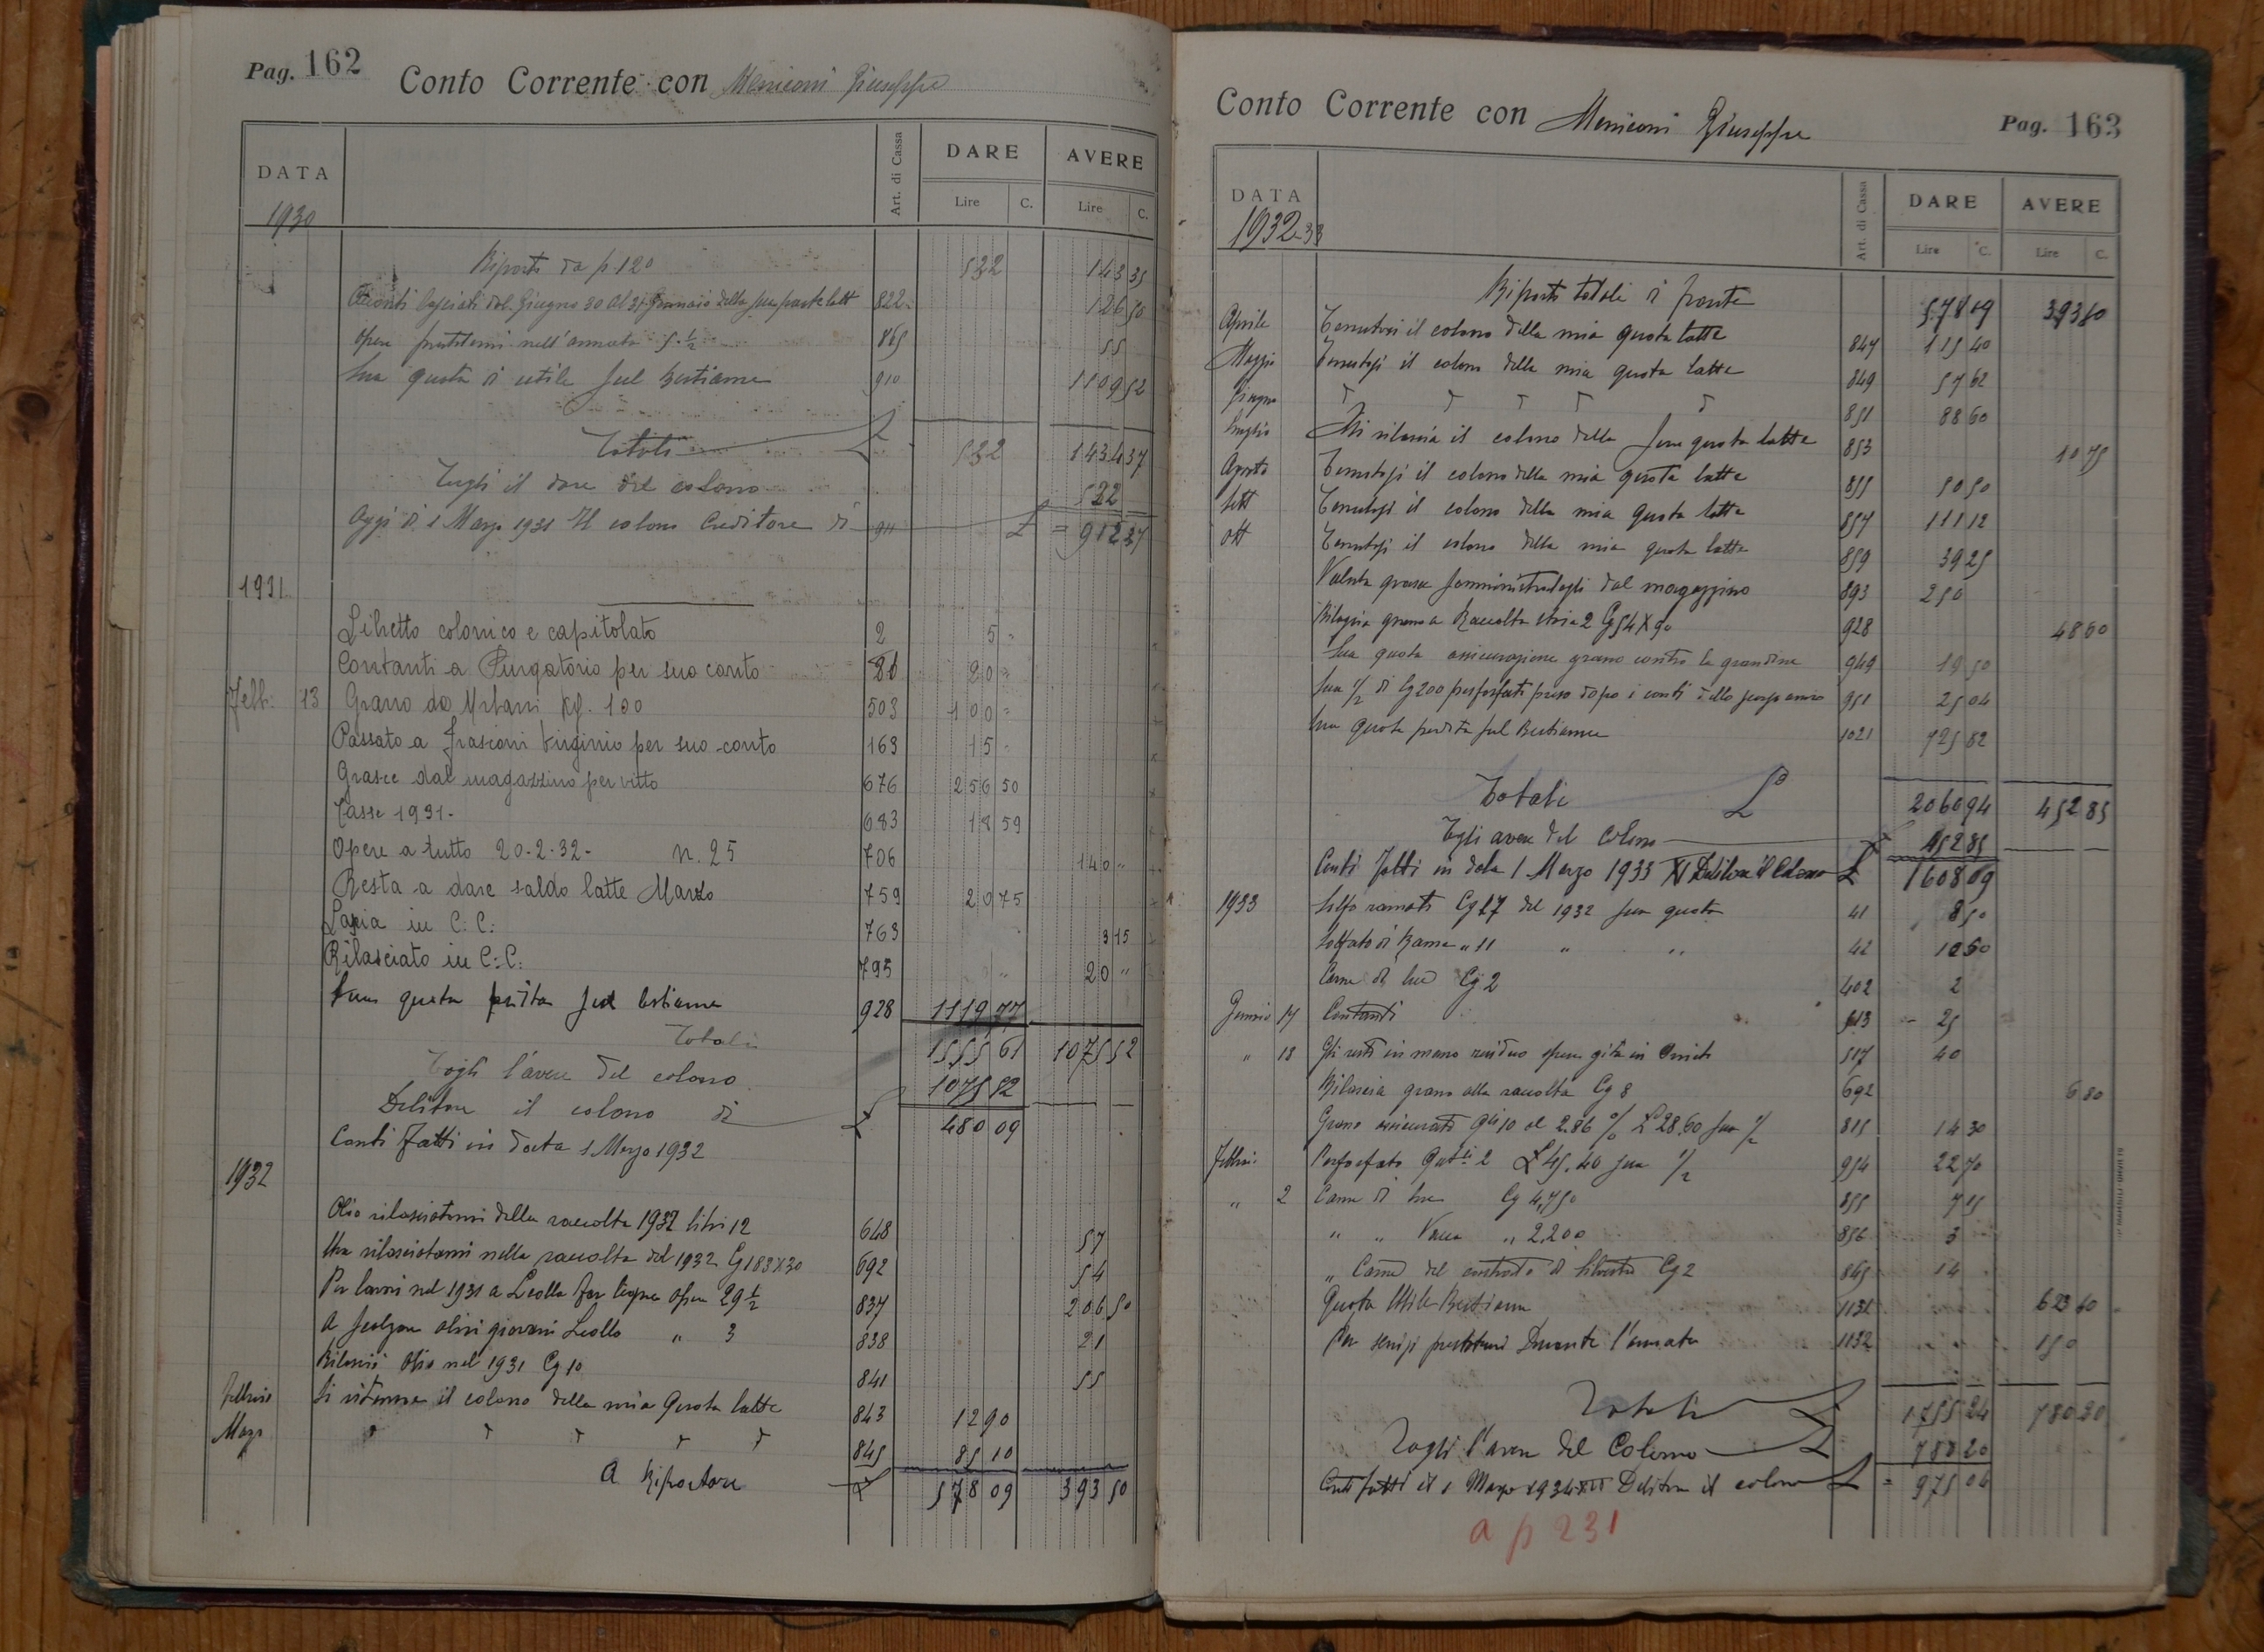 Pag. 162
Conto Corrente con Meniconi Giuseppe
DATA
Art. di Cassa
DARE
AVERE
Lire C. Lire C.
1930
Riporti da p 120 522 143 35
lasciati dal Giugno 30 al 31 Gennaio della sua parte latt 822 126 50
opere prestatemi nell'annata 5 ½ 865 55
Sua quota di utile sul bestiame 910 1109 52
Totali £ 522 1434 37
Togli il dare del colono 522
Oggi dì 1 Marzo 1931 Il colono Creditore di 911 £ = 912 37
1931
Libretto colonico e capitolato 2 5 "
Contanti a Purgatorio per suo conto 20 "
Febb. 13 Grano da Urbani Kg. 100 503 100 "
Passato a Frasconi Virginio per suo conto 163 15 "
Grasce dal magazzino per vitto 676 256 50
Tasse 1931- 683 18 59
Opere a tutto 20-2-32- n. 25 706 140 "
Resta a dare saldo latte Marzo 759 20 75
in C.C. 763 3 15
Rilasciato in C.C. 795 20 "
Sua quota perdita sul bestiame 928 1119 77
Totali 1555 61 1075 52
Togli l'avere del colono 1075 52
Debitore il colono di £ 480 09
Conti fatti in data 1 Marzo 1932
1932
Olio rilasciatomi della raccolta 1932 litri 12 648 57
Uva rilasciatami nella raccolta del 1932 Cg 183X30 692 54
Per lavori nel 1931 a Leolla far legna opere 29 ½ 837 206 50
A olivi giovani Leolla " 3 838 21
Rilasciò olio nel 1931 Cg 10 841 55
Febbraio Si ritenne il colono della mia Quota latte 843 12 90
Marzo " " " " " 845 85 10
A Riportare £ 578 09 393 50
Conto Corrente con Meniconi Giuseppe
Pag. 163
DATA
Art. di Cassa
DARE
AVERE
Lire C. Lire C.
1932-33
Riporti totali di fronte 578 09 393 50
Aprile Tenutosi il colono della mia quota latte 847 115 40
Maggio Tenutosi il colono della mia quota latte 849 57 62
Giugno " " " " " 851 88 60
Luglio Mi rilascia il colono della sua quota latte 853 10 75
Agosto Tenutosi il colono della mia quota latte 855 50 50
Sett Tenutosi il colono della mia quota latte 857 111 12
Ott Tenutosi il colono della mia quota latte 859 39 25
Valuta grasce somministratogli dal magazzino 893 250
Rilascia grano a Raccolta Cg 54X90 928 48 60
Sua quota assicurazione grano contro la grandine 949 19 50
Sua ½ di Cg 200 perfosfati preso dopo i conti dello scorso anno 951 25 04
Sua quota perdita sul Bestiame 1021 725 82
Totali £ 2060 94 452 85
Togli avere del Colono £ 452 85
Conti fatti in data 1 Marzo 1933 XI Debitore il Colono £ 1608 09
1933 Zolfo ramato Cg 17 del 1932 sua quota 41 8 50
Solfato di Rame " 11 " " 42 10 60
Carne di bue Cg 2 402 2
Gennaio 17 Contanti 513 25
" 18 Gli resti in mano residuo spese gita in 517 40
Rilascia grano alla raccolta Cg 8 692 6 80
Grano assicurato Qli 10 al 2.86 % £ 28.60 sua ½ 815 14 30
Febbraio Perfosfato Qut.li 2 £ 45.40 sua ½ 954 22 70
" 2 Carne di bue Cg 4,750 855 7 15
" " Vacca " 2.200 856 3
" Carne del Cg 2 865 14
Quota Utile Bestiame 1131 623 40
Per servizi prestatimi Durante l'annata 1132 150
Totali £ 1755 24 780 20
Togli l'avere del Colono £ 780 20
Conti fatti il 1 Marzo 1934 XII Debitore il colono £ = 975 04
a p 231